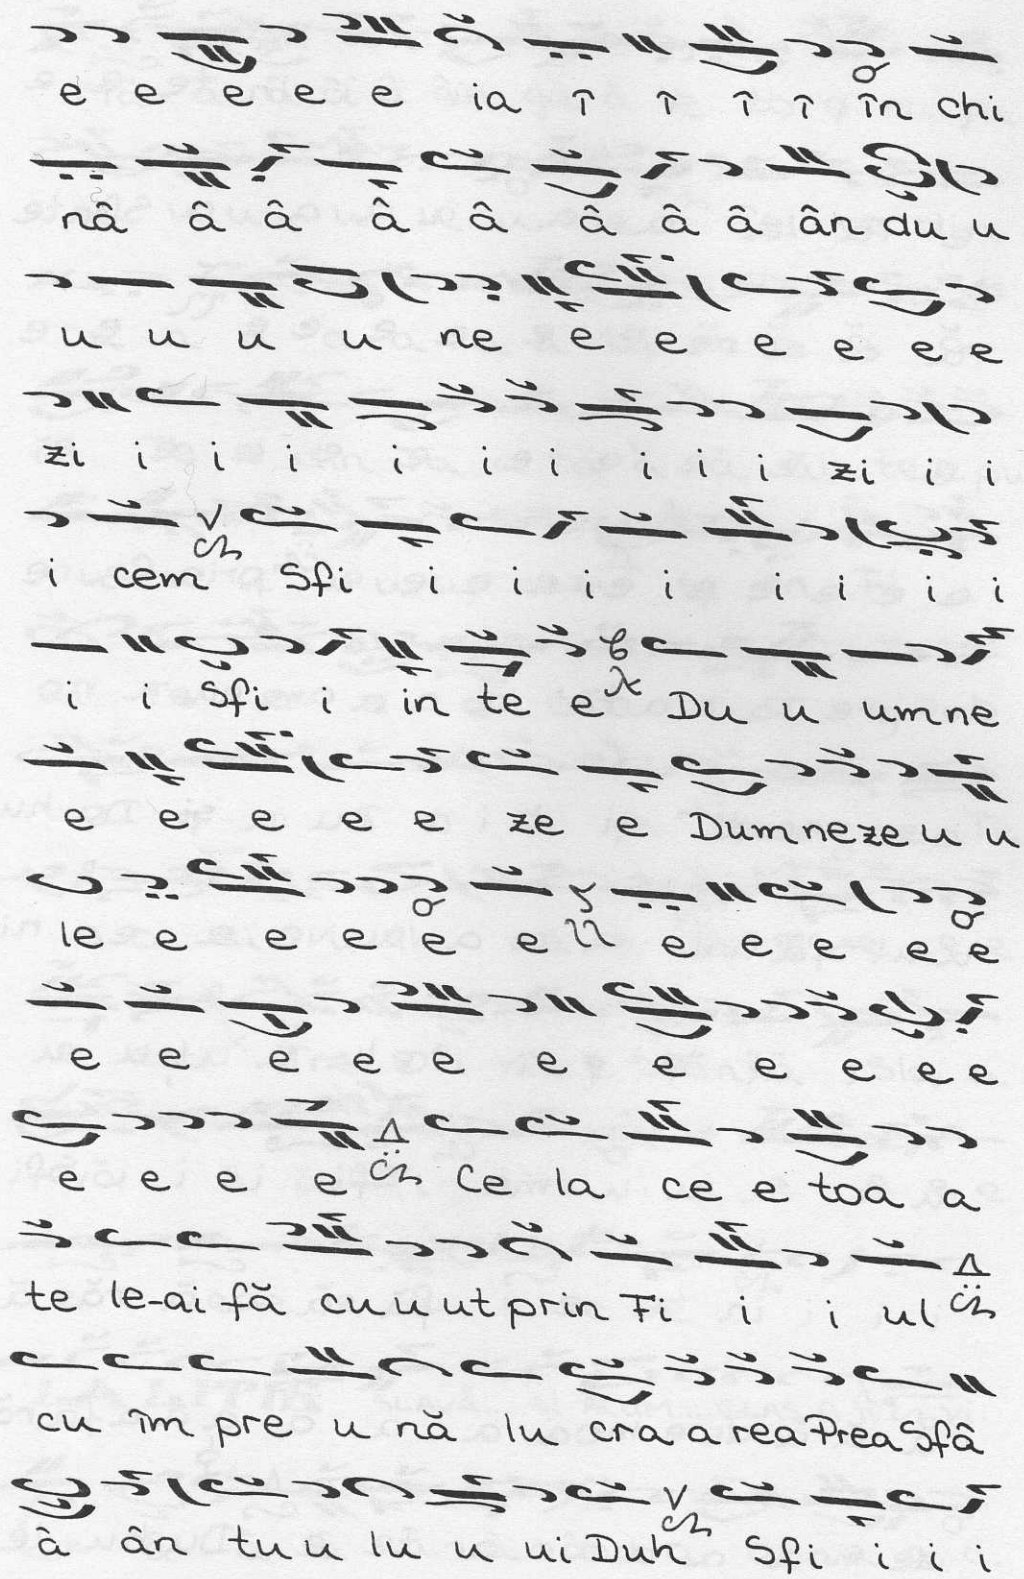 e e e e e ia î î î î în chi
nâ â â â â â â â ân du u
u u u u ne e e e e e e
zi i i i i i i i i i zi i i
i cem Sfi i i i i i i i i
i i Sfi i in te e Du u umne
e e e e e ze e Dumnezeu u
le e e e e e e e e e e
e e e e e e e e e e e
e e e e Ce la ce e toa a
te le-ai fă cu u ut prin Fi i i ul
cu îm pre u nă lu cra a rea Prea Sfâ
â ân tu u lu u ui Duh Sfi i i i